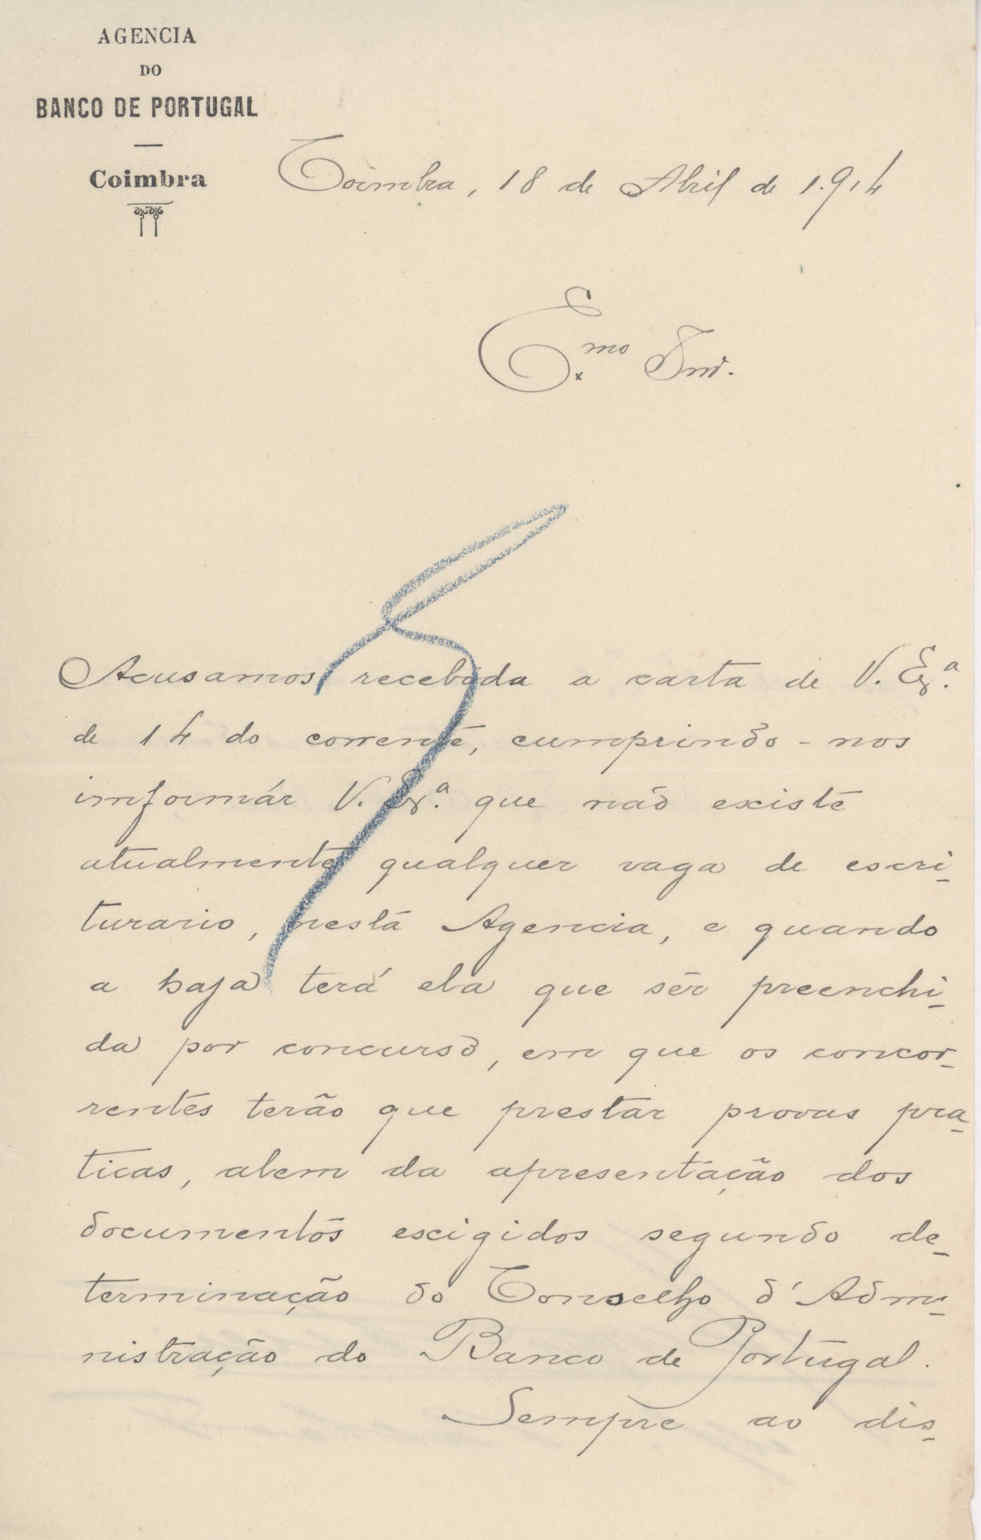 AGENCIA
DO
BANCO DE PORTUGAL
Coimbra
Coimbra, 18 de Abril de 1.914
Ex.mo Snr.
Acusamos recebida a carta de V. Ex.ª
de 14 do corrente, cumprindo-nos
informár V. Ex.ª que não existe
atualmente qualquer vaga de escri-
turario, nesta Agencia, e quando
a haja terá ela que ser preenchi-
da por concurso, em que os concor-
rentes terão que prestar provas pra-
ticas, alem da apresentação dos
documentos exigidos segundo de-
terminação do Conselho d'Admi-
nistração do Banco de Portugal.
Sempre ao dis-